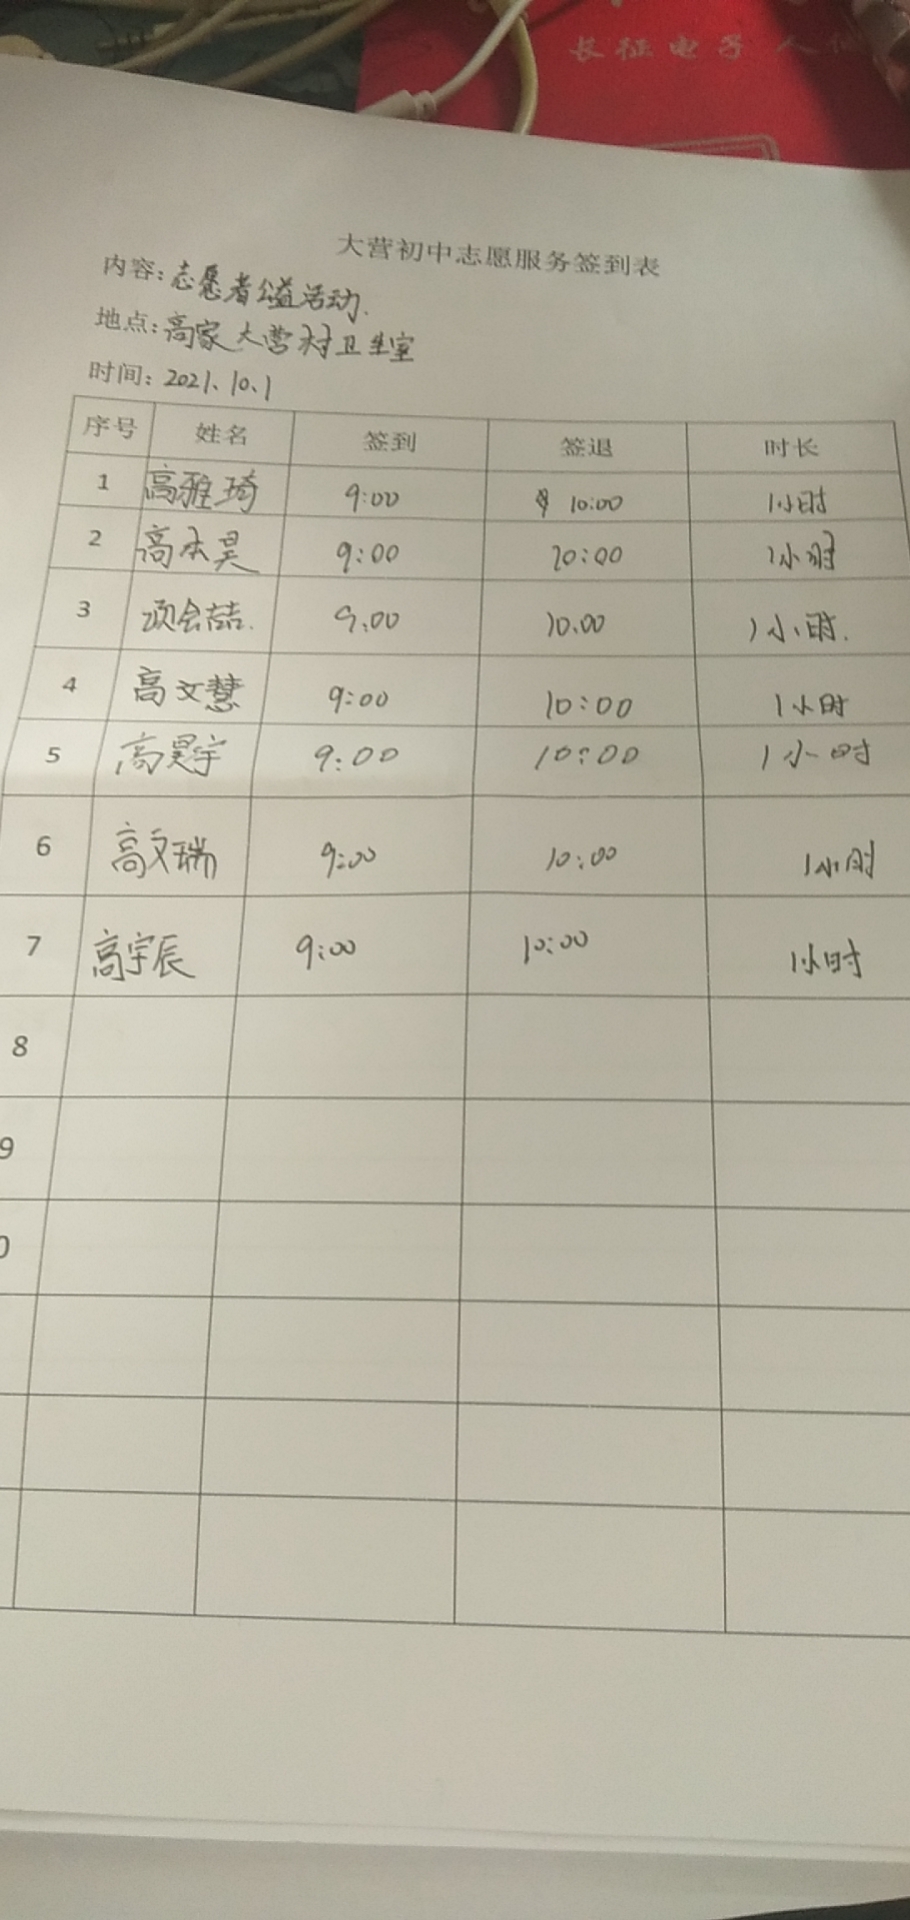 长征电子人
大营初中志愿服务签到表
内容:志愿者公益活动.
地点:高家大营村卫生室
时间:2021.10.1
序号 姓名 签到 签退 时长
1 高雅琦 9:00 10:00 1小时
2 高木昊 9:00 10:00 1小时
3 项会喆. 9:00 10.00 1小时.
4 高文慧 9:00 10:00 1小时
5 高昊宇 9:00 10:00 1小时
6 高文瑞 9:00 10:00 1小时
7 高宇辰 9:00 10:00 1小时
8
9
0